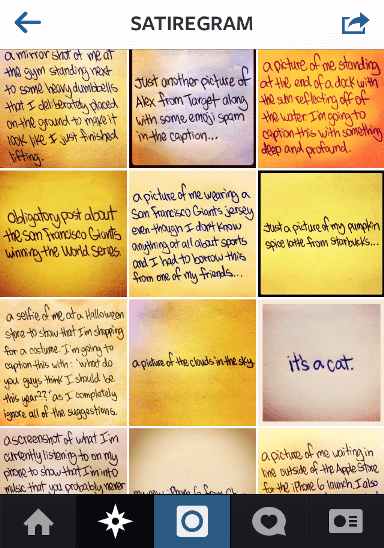 SATIREGRAM
a mirror shot of me at
the gym standing next
to some heavy dumbbells
that I deliberately placed
on the ground to make it
look like I just finished
lifting.
Just another picture of
Alex from Target along
with some emoji spam
in the caption...
a picture of me standing
at the end of a dock with
the sun reflecting off of
the water. I'm going to
caption this with something
deep and profound.
obligatory post about
the San Francisco Giants
winning the World Series.
a picture of me wearing a
San Francisco Giants jersey
even though I don't know
anything at all about sports
and I had to borrow this
from one of my friends...
Just a picture of my pumpkin
spice latte from Starbucks...
a selfie of me at a Halloween
store to show that I'm shopping
for a costume. I'm going to
caption this with: "what do
you guys think I should be
this year??" as I completely
ignore all of the suggestions.
a picture of the clouds in the sky.
it's a cat.
a screenshot of what I'm
currently listening to on my
phone to show that I'm into
music that you probably never
a picture of me waiting in
line outside of the Apple Store
for the iPhone 6 launch. I also